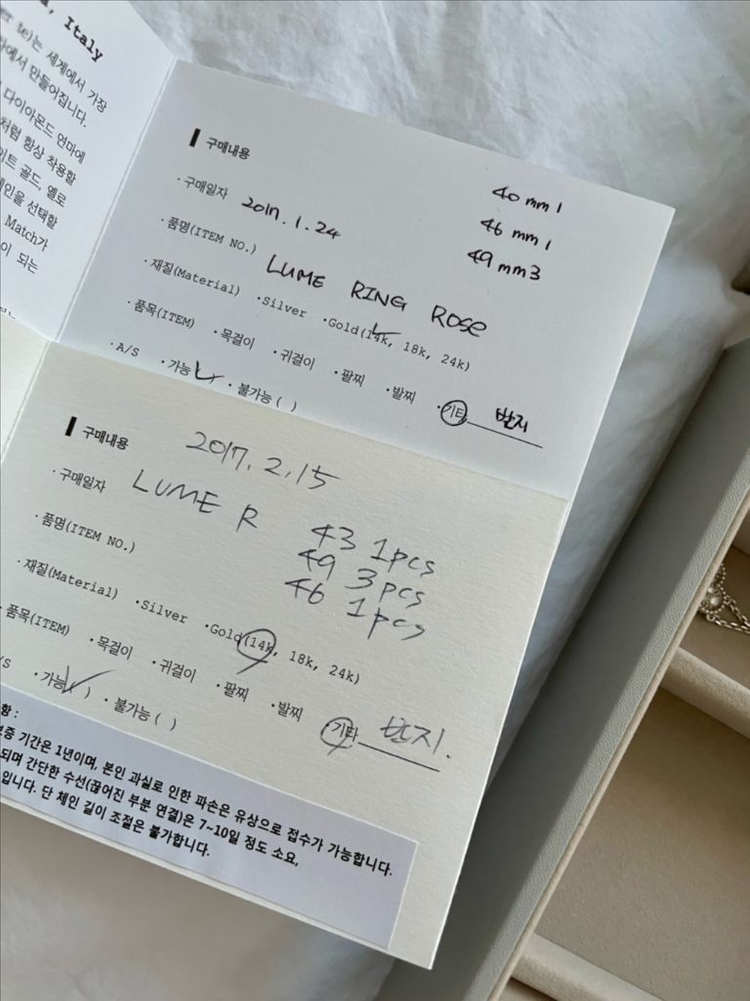 , Italy
는 세계에서 가장
에서 만들어집니다.
다이아몬드 연마에
처럼 항상 착용할
이트 골드, 옐로
인을 선택할
Match가
이 되는
구매내용
40 mm 1
46 mm 1
49 mm 3
· 구매일자 2017. 1. 24
· 품명(ITEM NO.) LUME RING ROSE
· 재질(Material) · Silver · Gold(14k, 18k, 24k)
· 품목(ITEM) · 목걸이 · 귀걸이 · 팔찌 · 발찌 · 기타 반지
· A/S · 가능 · 불가능( )
구매내용 2017. 2. 15
· 구매일자 LUME R 43 1pcs
49 3pcs
46 1pcs
· 품명(ITEM NO.)
· 재질(Material) · Silver · Gold(14k, 18k, 24k)
· 품목(ITEM) · 목걸이 · 귀걸이 · 팔찌 · 발찌 · 기타 반지.
/S · 가능 ) · 불가능( )
항 :
보증 기간은 1년이며, 본인 과실로 인한 파손은 유상으로 접수가 가능합니다.
되며 간단한 수선(끊어진 부분 연결)은 7~10일 정도 소요,
입니다. 단 체인 길이 조절은 불가합니다.